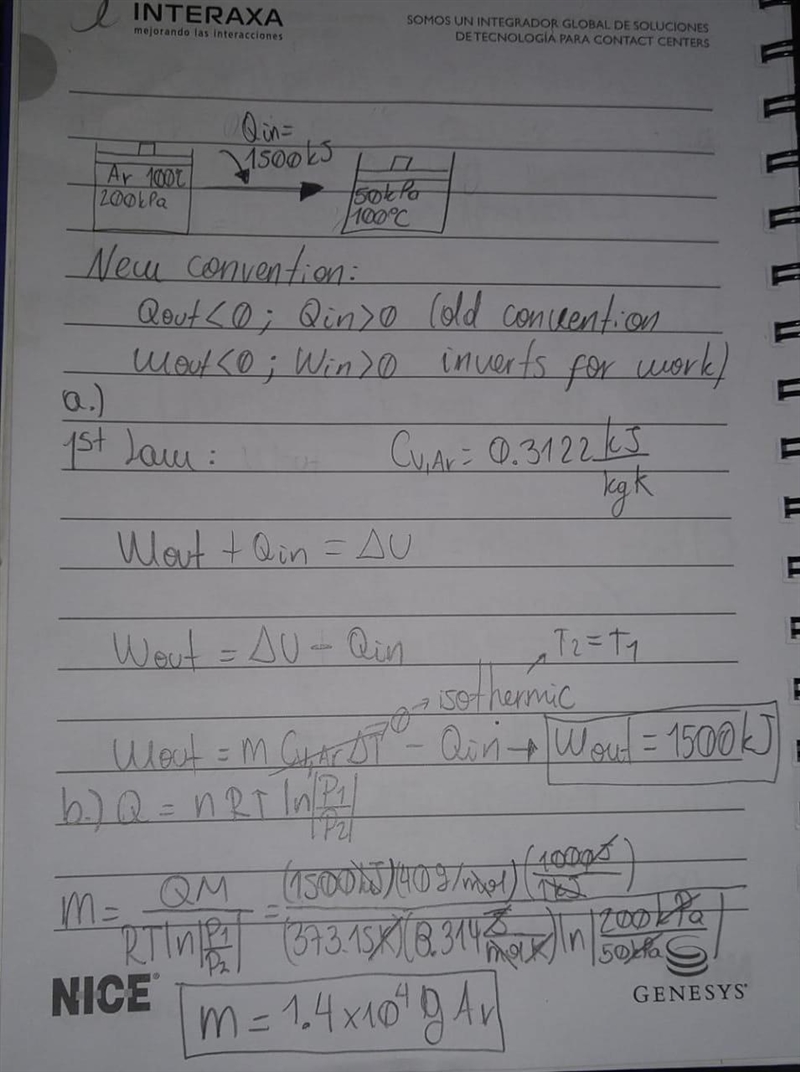 INTERAXA
mejorando las interacciones
SOMOS UN INTEGRADOR GLOBAL DE SOLUCIONES
DE TECNOLOGÍA PARA CONTACT CENTERS
Qin=
1500kJ
Ar 100°C
200kPa
50kPa
100°C
New convention:
Qout<0; Qin>0 (old convention
Wout<0; Win>0 inverts for work)
a.)
1st Law: Cv,Ar = 0.3122 kJ/kgK
Wout + Qin = ΔU
Wout = ΔU - Qin → T2=T1
→ isothermic
Wout = m Cv,Ar ΔT → 0 - Qin → Wout = 1500kJ
b.) Q = nRT ln|P1/P2|
m = QM/RT ln|P1/P2| = (1500kJ)(40g/mol)(1000J/1kJ)/(373.15K)(8.314 J/molK) ln|200kPa/50kPa|
m = 1.4x10⁴ g Ar
NICE®
GENESYS®